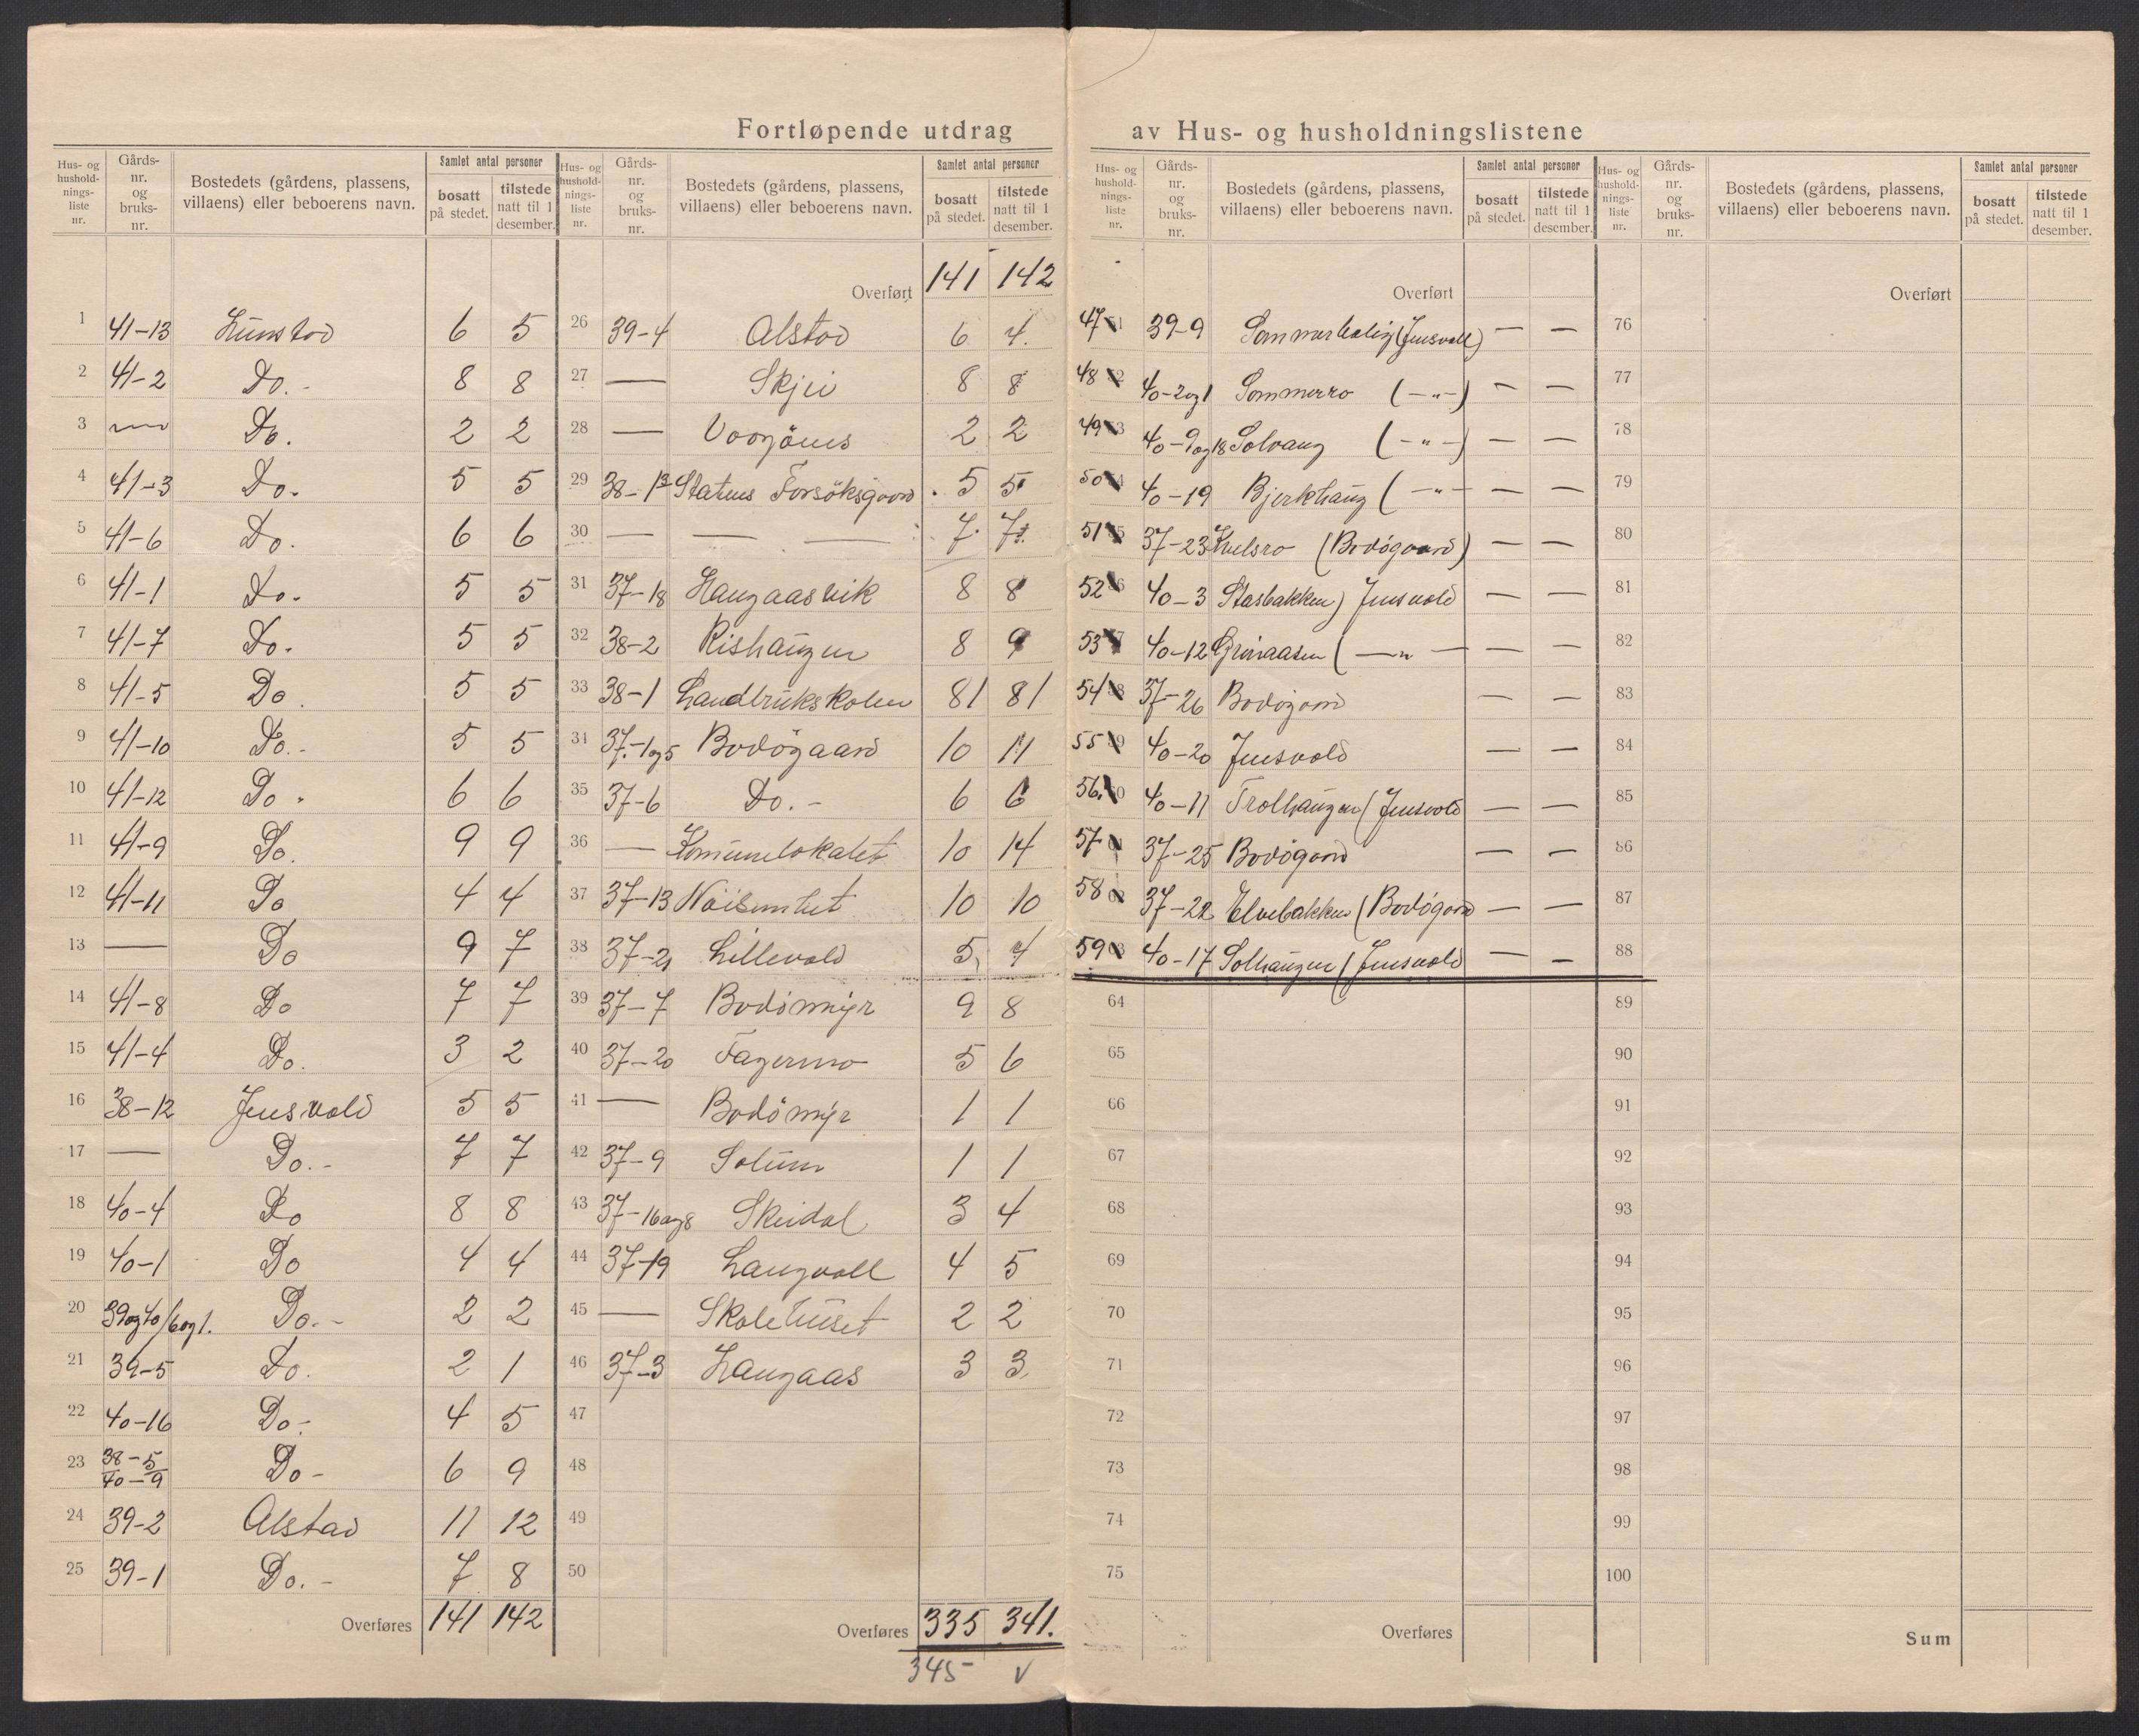 Fortløpende utdrag av Hus- og husholdningslistene
Hus- og hushold-nings-liste nr. | Gårds-nr. og bruks-nr. | Bostedets (gårdens, plassens, villaens) eller beboerens navn. | Samlet antal personer | bosatt på stedet. | tilstede natt til 1 desember.
1 41-13 6 5
2 41-2 Do.- 8 8
3 Do. 2 2
4 41-3 Do. 5 5
5 41-6 Do. 6 6
6 41-1 Do. 5 5
7 41-7 Do. 5 5
8 41-5 Do. 5 5
9 41-10 Do.- 5 5
10 41-12 Do. 6 6
11 41-9 Do. 9 9
12 41-11 Do 4 4
13 — Do 9 7
14 41-8 Do 7 7
15 41-4 Do. 3 2
16 38-12 Jensvold 5 5
17 — Do.- 7 7
18 40-4 Do 8 8
19 40-1 Do 4 4
20 39og40/6og1. Do.- 2 2
21 39-5 Do. 2 1
22 40-16 Do.- 4 5
23 38-5 40-9 Do- 6 9
24 39-2 Alstad 11 12
25 39-1 Do.- 7 8
Overføres 141 142
Hus- og hushold-nings-liste nr. | Gårds-nr. og bruks-nr. | Bostedets (gårdens, plassens, villaens) eller beboerens navn. | Samlet antal personer | bosatt på stedet. | tilstede natt til 1 desember.
Overført 141 142
26 39-4 Alstad 6 4.
27 — Skjei 8 8
28 — 2 2
29 38-13 Statens Forsöksgaard. 5 5
30 — — — 7. 7
31 37-18 Langaasvik 8 8
32 38-2 Rishaugen 8 9
33 38-1 Landbruksskolen 81 81
34 37-1og5 Bodögaard 10 11
35 37-6 Do.- 6 6
36 — Komunelokalet 10 14
37 37-13 Nöisomhet 10 10
38 37-21 Lillevold 5 4
39 37-7 Bodömyr 9 8
40 37-20 Fagermo 5 6
41 — Bodömyr 1 1
42 37-9 Solum 1 1
43 37-16og8 Skeidal 3 4
44 37-19 Langvoll 4 5
45 — Skolehuset 2 2
46 37-3 Langaas 3 3
47
48
49
50
Overføres 335 341.
345 v
Hus- og hushold-nings-liste nr. | Gårds-nr. og bruks-nr. | Bostedets (gårdens, plassens, villaens) eller beboerens navn. | Samlet antal personer | bosatt på stedet. | tilstede natt til 1 desember.
Overført
47 39-9 Sommerbolig (Jensvoll) — —
48 40-2og1 Sommerro (-"-) — —
49 40-9og18 Solvang (-"-) — —
50 40-19 Bjerkhaug (-"- — —
51 37-23 (Bodögaard) — —
52 40-3 Jensvold — —
53 40-12 Grönaasen (-"- — —
54 37-26 Bodögaard — —
55 40-20 Jensvold — —
56. 40-11 Trolhaugen (Jensvold — —
57 37-25 Bodögaard — —
58 37-22 Elvebakken (Bodögaard — —
59 40-17 Solhaugen (Jensvold — —
64
65
66
67
68
69
70
71
72
73
74
75
Overføres
Hus- og hushold-nings-liste nr. | Gårds-nr. og bruks-nr. | Bostedets (gårdens, plassens, villaens) eller beboerens navn. | Samlet antal personer | bosatt på stedet. | tilstede natt til 1 desember.
Overført
76
77
78
79
80
81
82
83
84
85
86
87
88
89
90
91
92
93
94
95
96
97
98
99
100
Sum